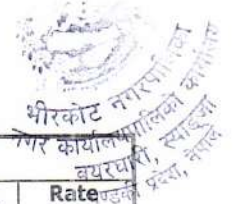 भीरकोट नगरपालिका
नगर कार्यपालिकाको कार्यालय
बयरघारी, स्याङ्जा
गण्डकी प्रदेश, नेपाल
Rate